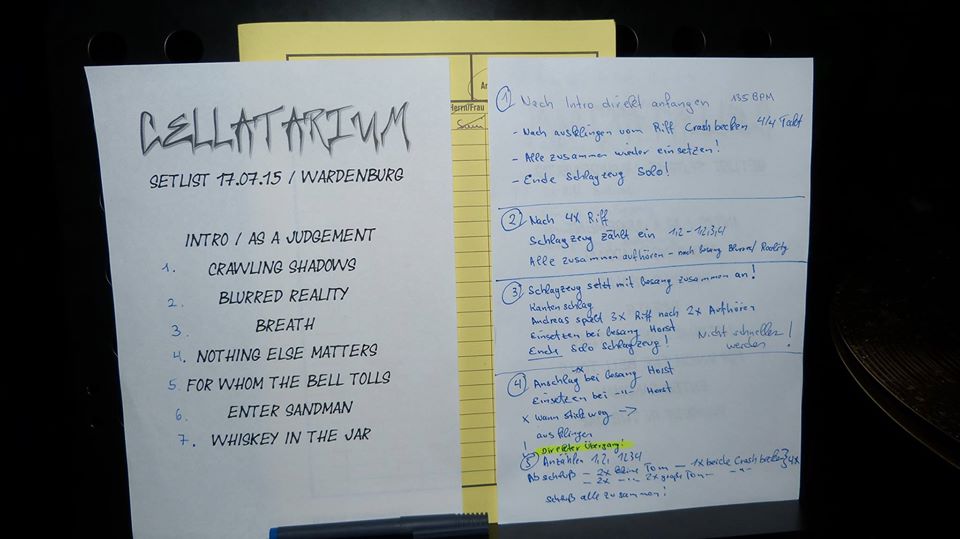 CELLATARIUM
SETLIST 17.07.15 / WARDENBURG
INTRO / AS A JUDGEMENT
1. CRAWLING SHADOWS
2. BLURRED REALITY
3. BREATH
4. NOTHING ELSE MATTERS
5. FOR WHOM THE BELL TOLLS
6. ENTER SANDMAN
7. WHISKEY IN THE JAR
Herrn/Frau
An
1 Nach Intro direkt anfangen 135 BPM
- Nach ausklingen vom Riff Crashbecken 4/4 Takt
- Alle zusammen wieder einsetzen!
- Ende Schlagzeug Solo!
2 Nach 4x Riff
Schlagzeug zählt ein 1,2 - 1,2,3,4
Alle zusammen aufhören - nach Gesang Blurred Reality
3 Schlagzeug setzt mit Gesang zusammen an!
Kantenschlag
Andreas spielt 3x Riff nach 2x Aufhören
Einsetzen bei Gesang Horst
Ende Solo Schlagzeug! Nicht schneller werden!
4 Anschlag bei Gesang Horst
Einsetzen bei -"- Horst
x Wann Stick weg ->
ausklingen
! Direkter Übergang!
5 Anzählen 1,2, 1234
Abschluß - 2x kleine Tom - 1x beide Crashbecken } 4x
- 2x -"- 2x große Tom - -"-
Schluß alle zusammen!